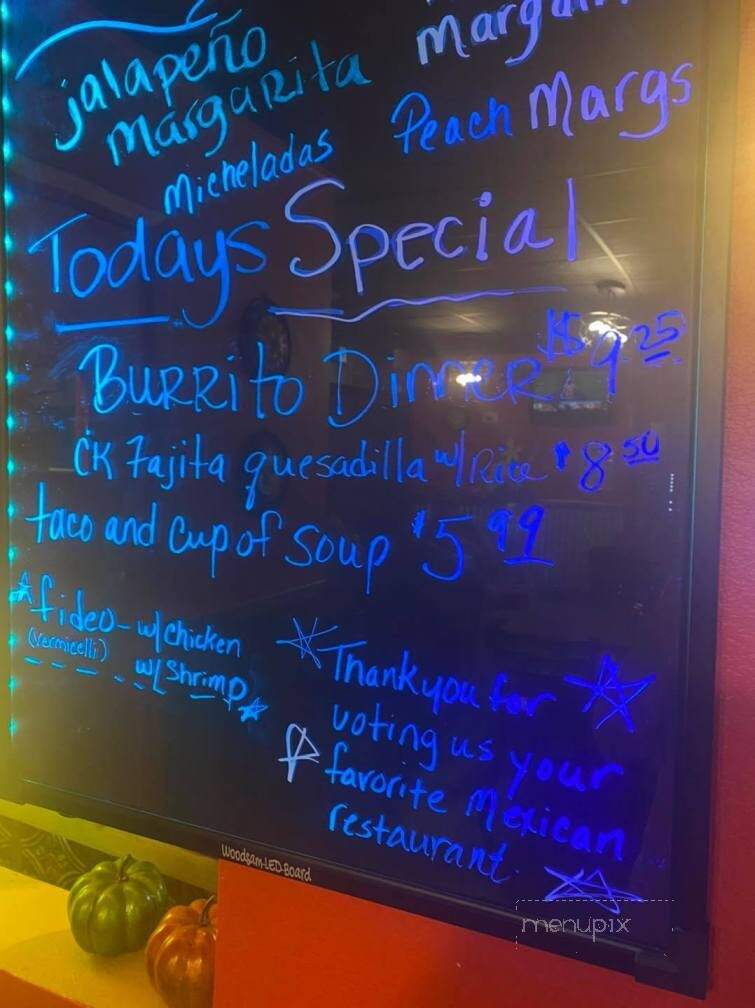 jalapeño
margarita
Micheladas
Peach Margs
Todays Special
Burrito Dinner $9.25
CK Fajita quesadilla w/Rice $8.50
taco and cup of soup $5.99
fideo - w/chicken
(vermicelli) w/ Shrimp
Thank you for
voting us your
favorite Mexican
restaurant.
Woodsam-LED-Board
menupix